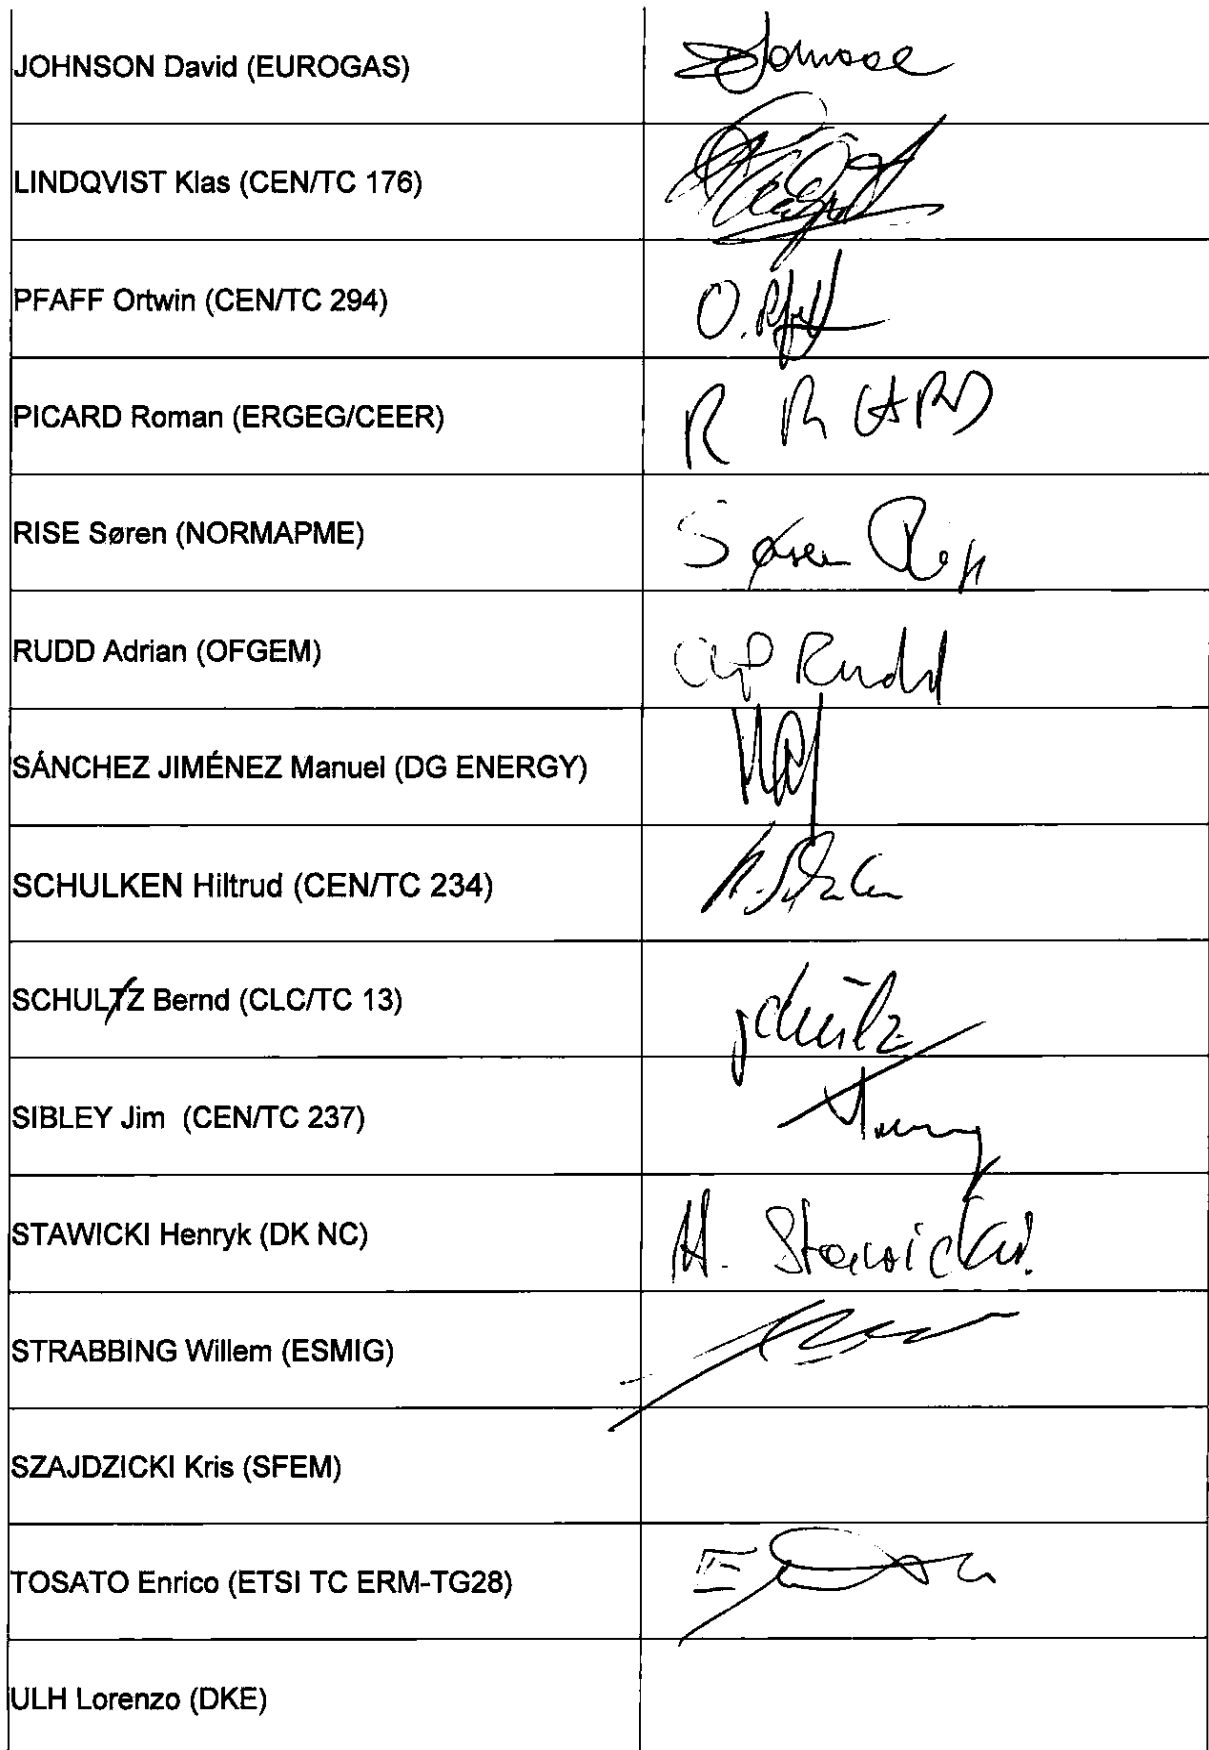 JOHNSON David (EUROGAS)
LINDQVIST Klas (CEN/TC 176)
PFAFF Ortwin (CEN/TC 294)
O. Pfaff
PICARD Roman (ERGEG/CEER)
R PICARD
RISE Søren (NORMAPME)
Søren Rise
RUDD Adrian (OFGEM)
Rudd
SÁNCHEZ JIMÉNEZ Manuel (DG ENERGY)
SCHULKEN Hiltrud (CEN/TC 234)
SCHULTZ Bernd (CLC/TC 13)
schulz
SIBLEY Jim (CEN/TC 237)
STAWICKI Henryk (DK NC)
H. Stawicki
STRABBING Willem (ESMIG)
SZAJDZICKI Kris (SFEM)
TOSATO Enrico (ETSI TC ERM-TG28)
ULH Lorenzo (DKE)